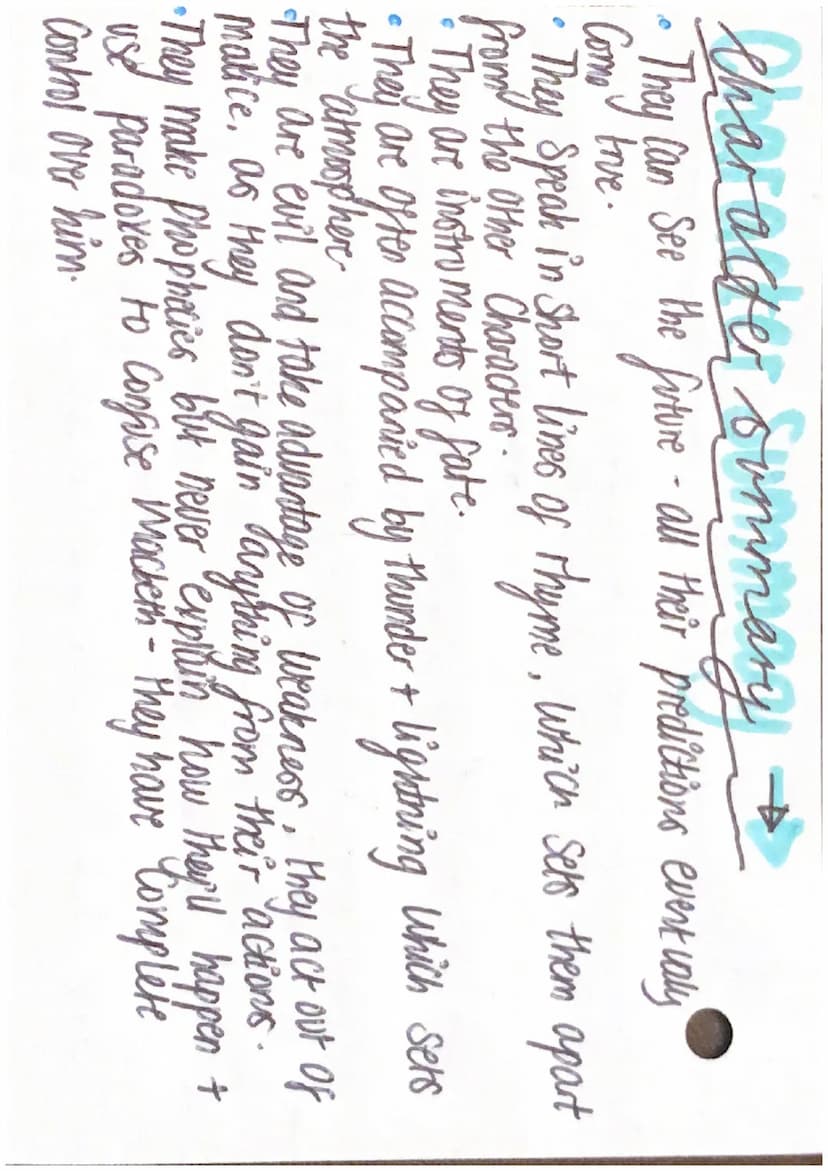 Character Summary →
• They can see the future - all their predictions eventually
come true.
• They speak in short lines of rhyme, which sets them apart
from the other characters.
• They are instruments of fate.
• They are often accompanied by thunder + lightning which sets
the atmosphere
• They are evil and take advantage of weakness, they act out of
malice, as they don't gain anything from their actions.
• They make phophecies but never explain how they'll happen +
use paradoxes to confuse Macbeth - they have complete
control over him.